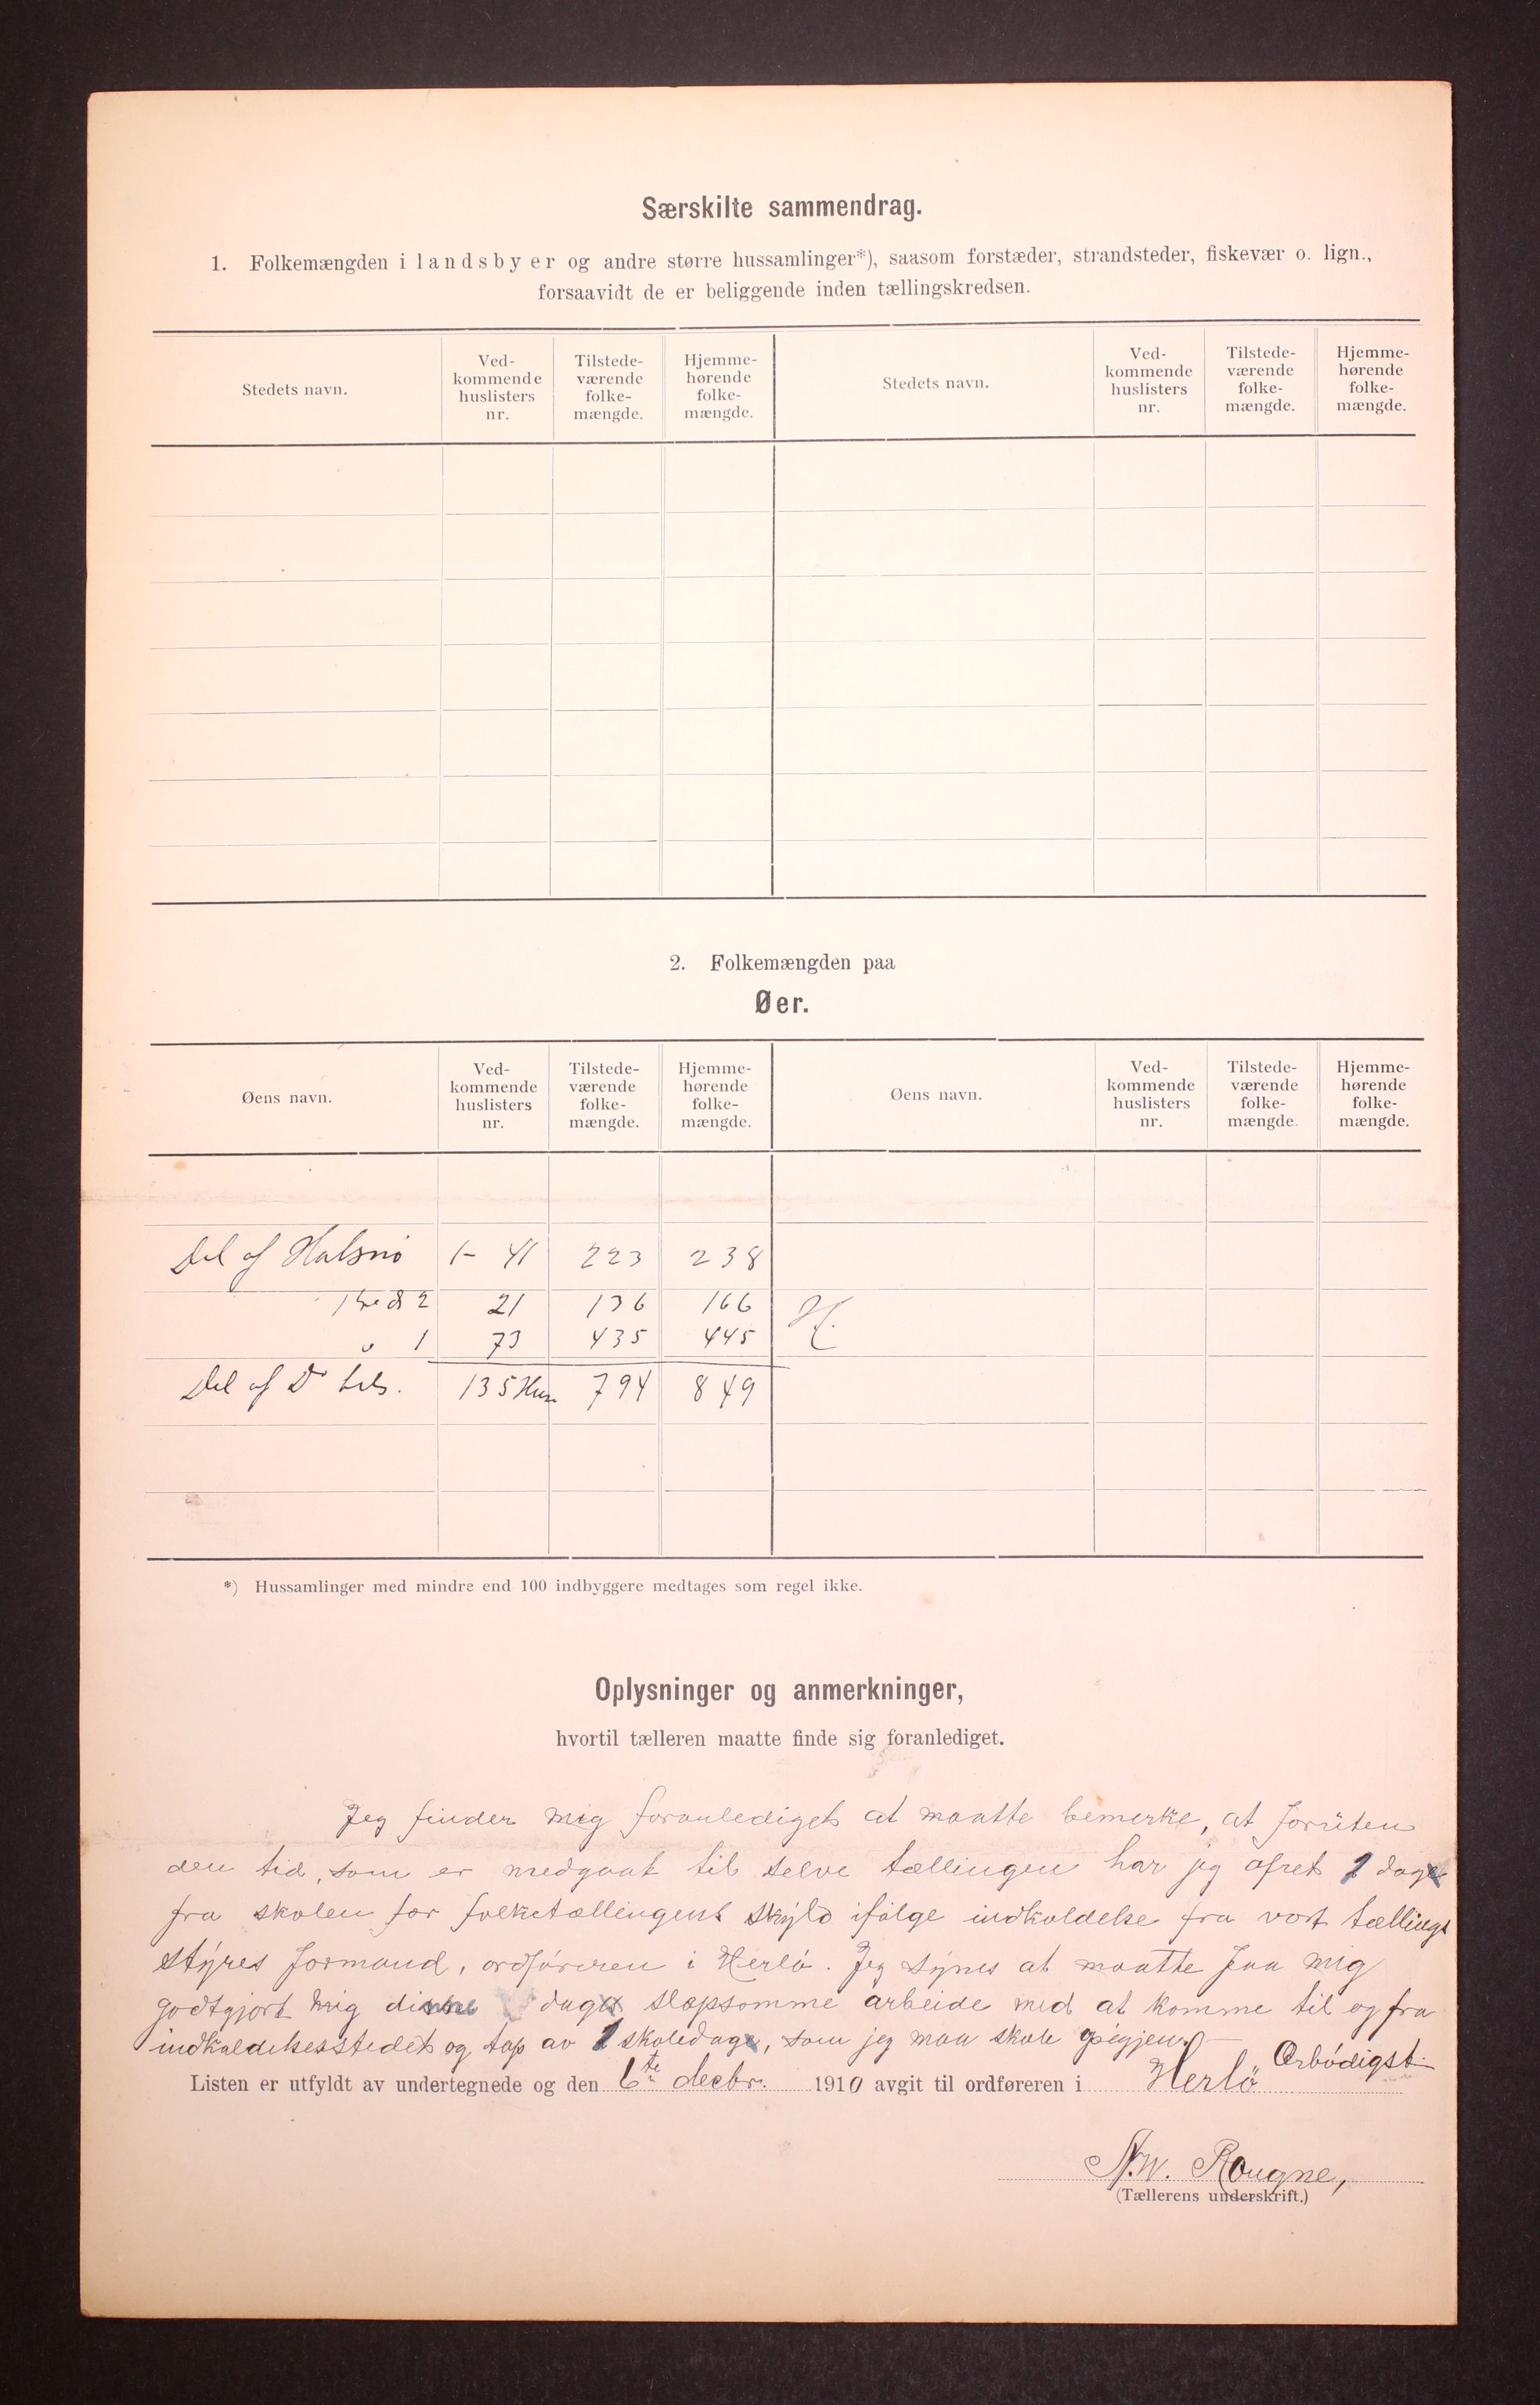 Særskilte sammendrag.
1. Folkemængden i landsbyer og andre større hussamlinger*), saasom forstæder, strandsteder, fiskevær o. lign.,
forsaavidt de er beliggende inden tællingskredsen.
Stedets navn. Ved-kommende huslisters nr. Tilstede-værende folke-mængde. Hjemme-hørende folke-mængde. Stedets navn. Ved-kommende huslisters nr. Tilstede-værende folke-mængde. Hjemme-hørende folke-mængde.
2. Folkemængden paa
Øer.
Øens navn. Ved-kommende huslisters nr. Tilstede-værende folke-mængde. Hjemme-hørende folke-mængde. Øens navn. Ved-kommende huslisters nr. Tilstede-værende folke-mængde. Hjemme-hørende folke-mængde.
Del af Holsnö 1- 41 223 238
2 21 136 166 H.
" 1 73 435 445
Del af Do 135 Hus 794 849
*) Hussamlinger med mindre end 100 indbyggere medtages som regel ikke.
Oplysninger og anmerkninger,
hvortil tælleren maatte finde sig foranlediget.
Jeg finder mig foranlediget at maatte bemerke, at foruten
den tid, som er medgaat til selve tællingen har jeg ofret 1 dag
fra skolen for folketællingens skyld ifölge indkaldelse fra vort tællings
styres formand, ordföreren i Herlö. Jeg synes at maatte faa mig
godtgjort mig denne dags slapsomme arbeide med at komme til og fra
indkaldelsesstedet og tap av 1 skoledag, som jeg maa skole igjen.
Ærbödigst
Listen er utfyldt av undertegnede og den 6te decbr. 1910 avgit til ordføreren i Herlö
N.W. Rougne,
(Tællerens underskrift.)